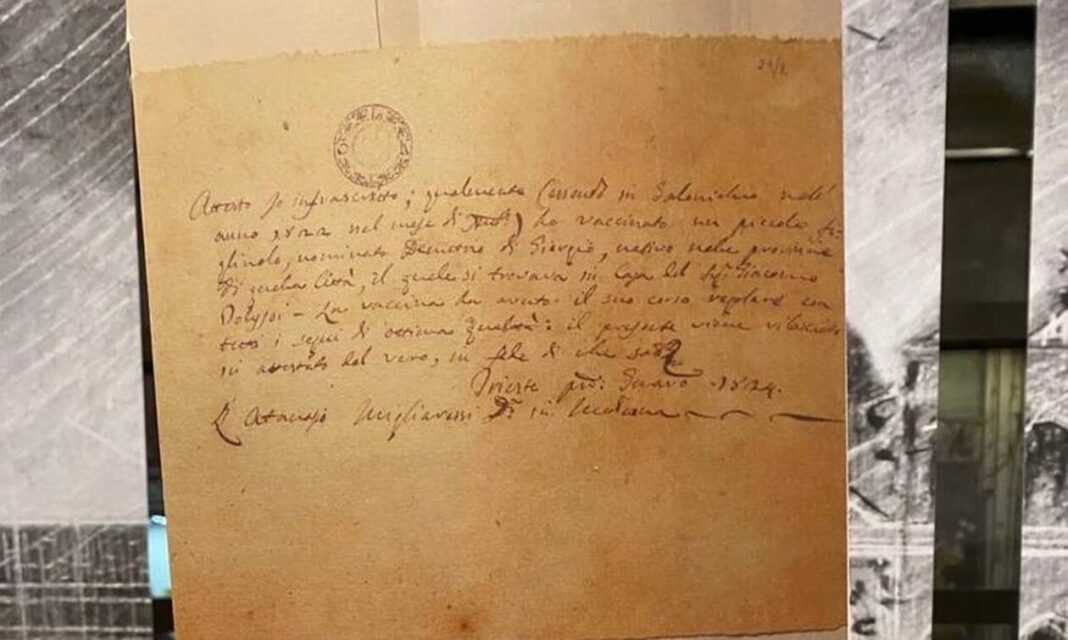 Attesto Jo infrascritto; qualmente essendo in Salonichio nell'
anno 1822 nel mese di ho vaccinato un piccolo fi-
gliuolo, nominato di Giorgio, nativo nelle provincie
di quella Città, il quale si trovava in Casa del Sigr Giacomo
La vaccina ha avuto il suo corso regolare con
tutti i segni di ottima qualità: il presente viene rilasciato
in attestato del vero, in fede di che
Trieste 1824.
Dr in Medicina